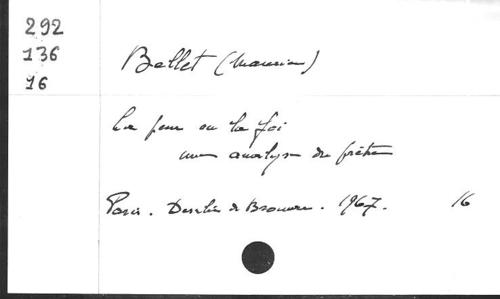 292
136
16
Bellet (Maurice)
La peur ou la foi
une analyse du prêtre
Paris. Desclée de Brouwer. 1967. 16